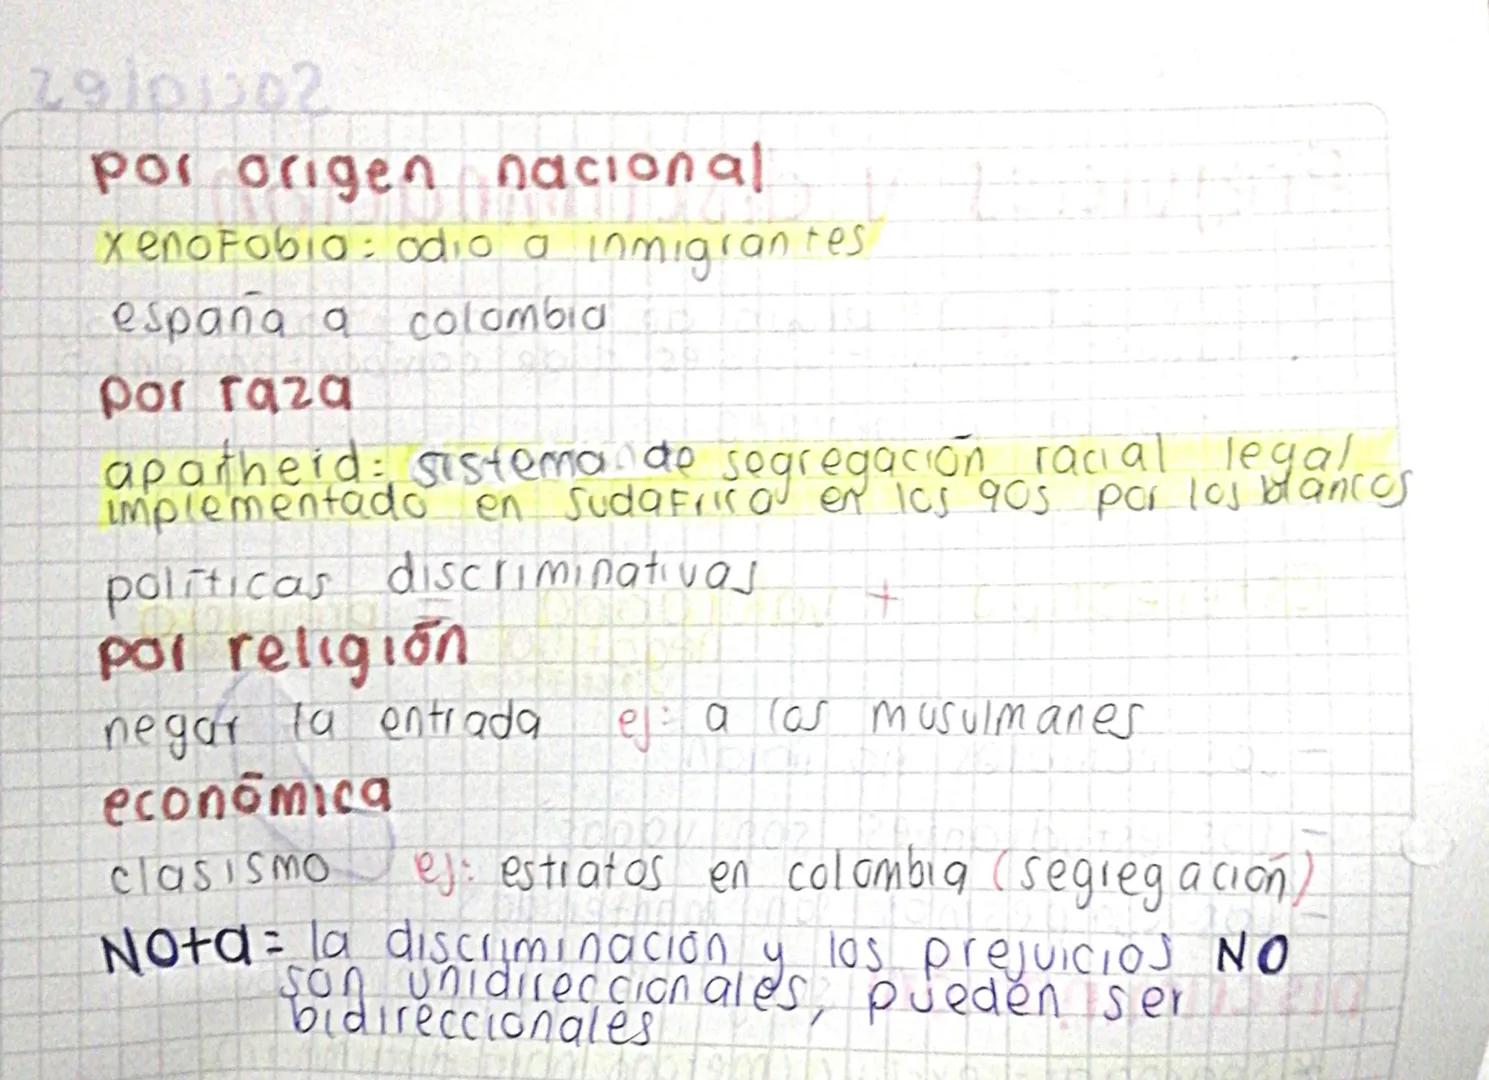 por origen nacional
xenofobia: odio a inmigrantes
españa a colombia
por raza
apartheid: sistema de segregación racial legal
implementado en sudafrica en los 90s por los blancos
políticas discriminativas
por religión
negar la entrada ej: a los musulmanes
económica
clasismo ej: estratos en colombia (segregación)
Nota= la discriminación y los prejuicios NO
son unidireccionales, pueden ser
bidireccionales